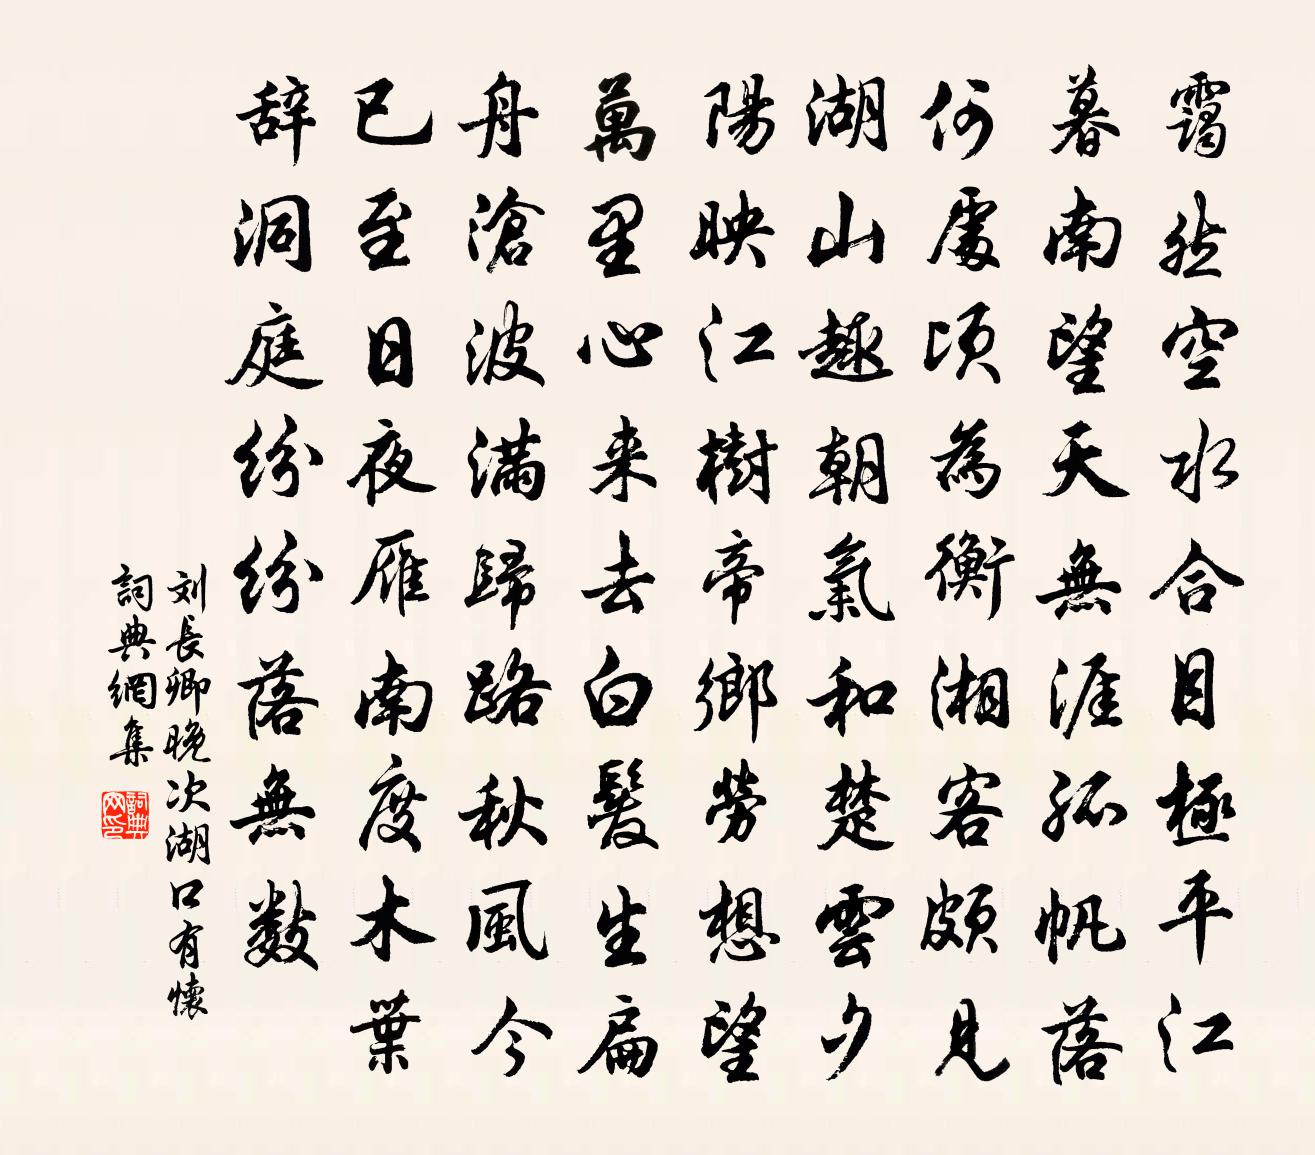 靄然空水合目極平江
暮南望天無涯孤帆落
何處頃為衡湘客頗見
湖山趣朝氣和楚雲夕
陽映江樹帝鄉勞想望
萬里心来去白髮生扁
舟滄波滿歸路秋風今
已至日夜雁南度木葉
辞洞庭紛紛落無数
刘長卿晚次湖口有懷
詞典網集
詞典
网印